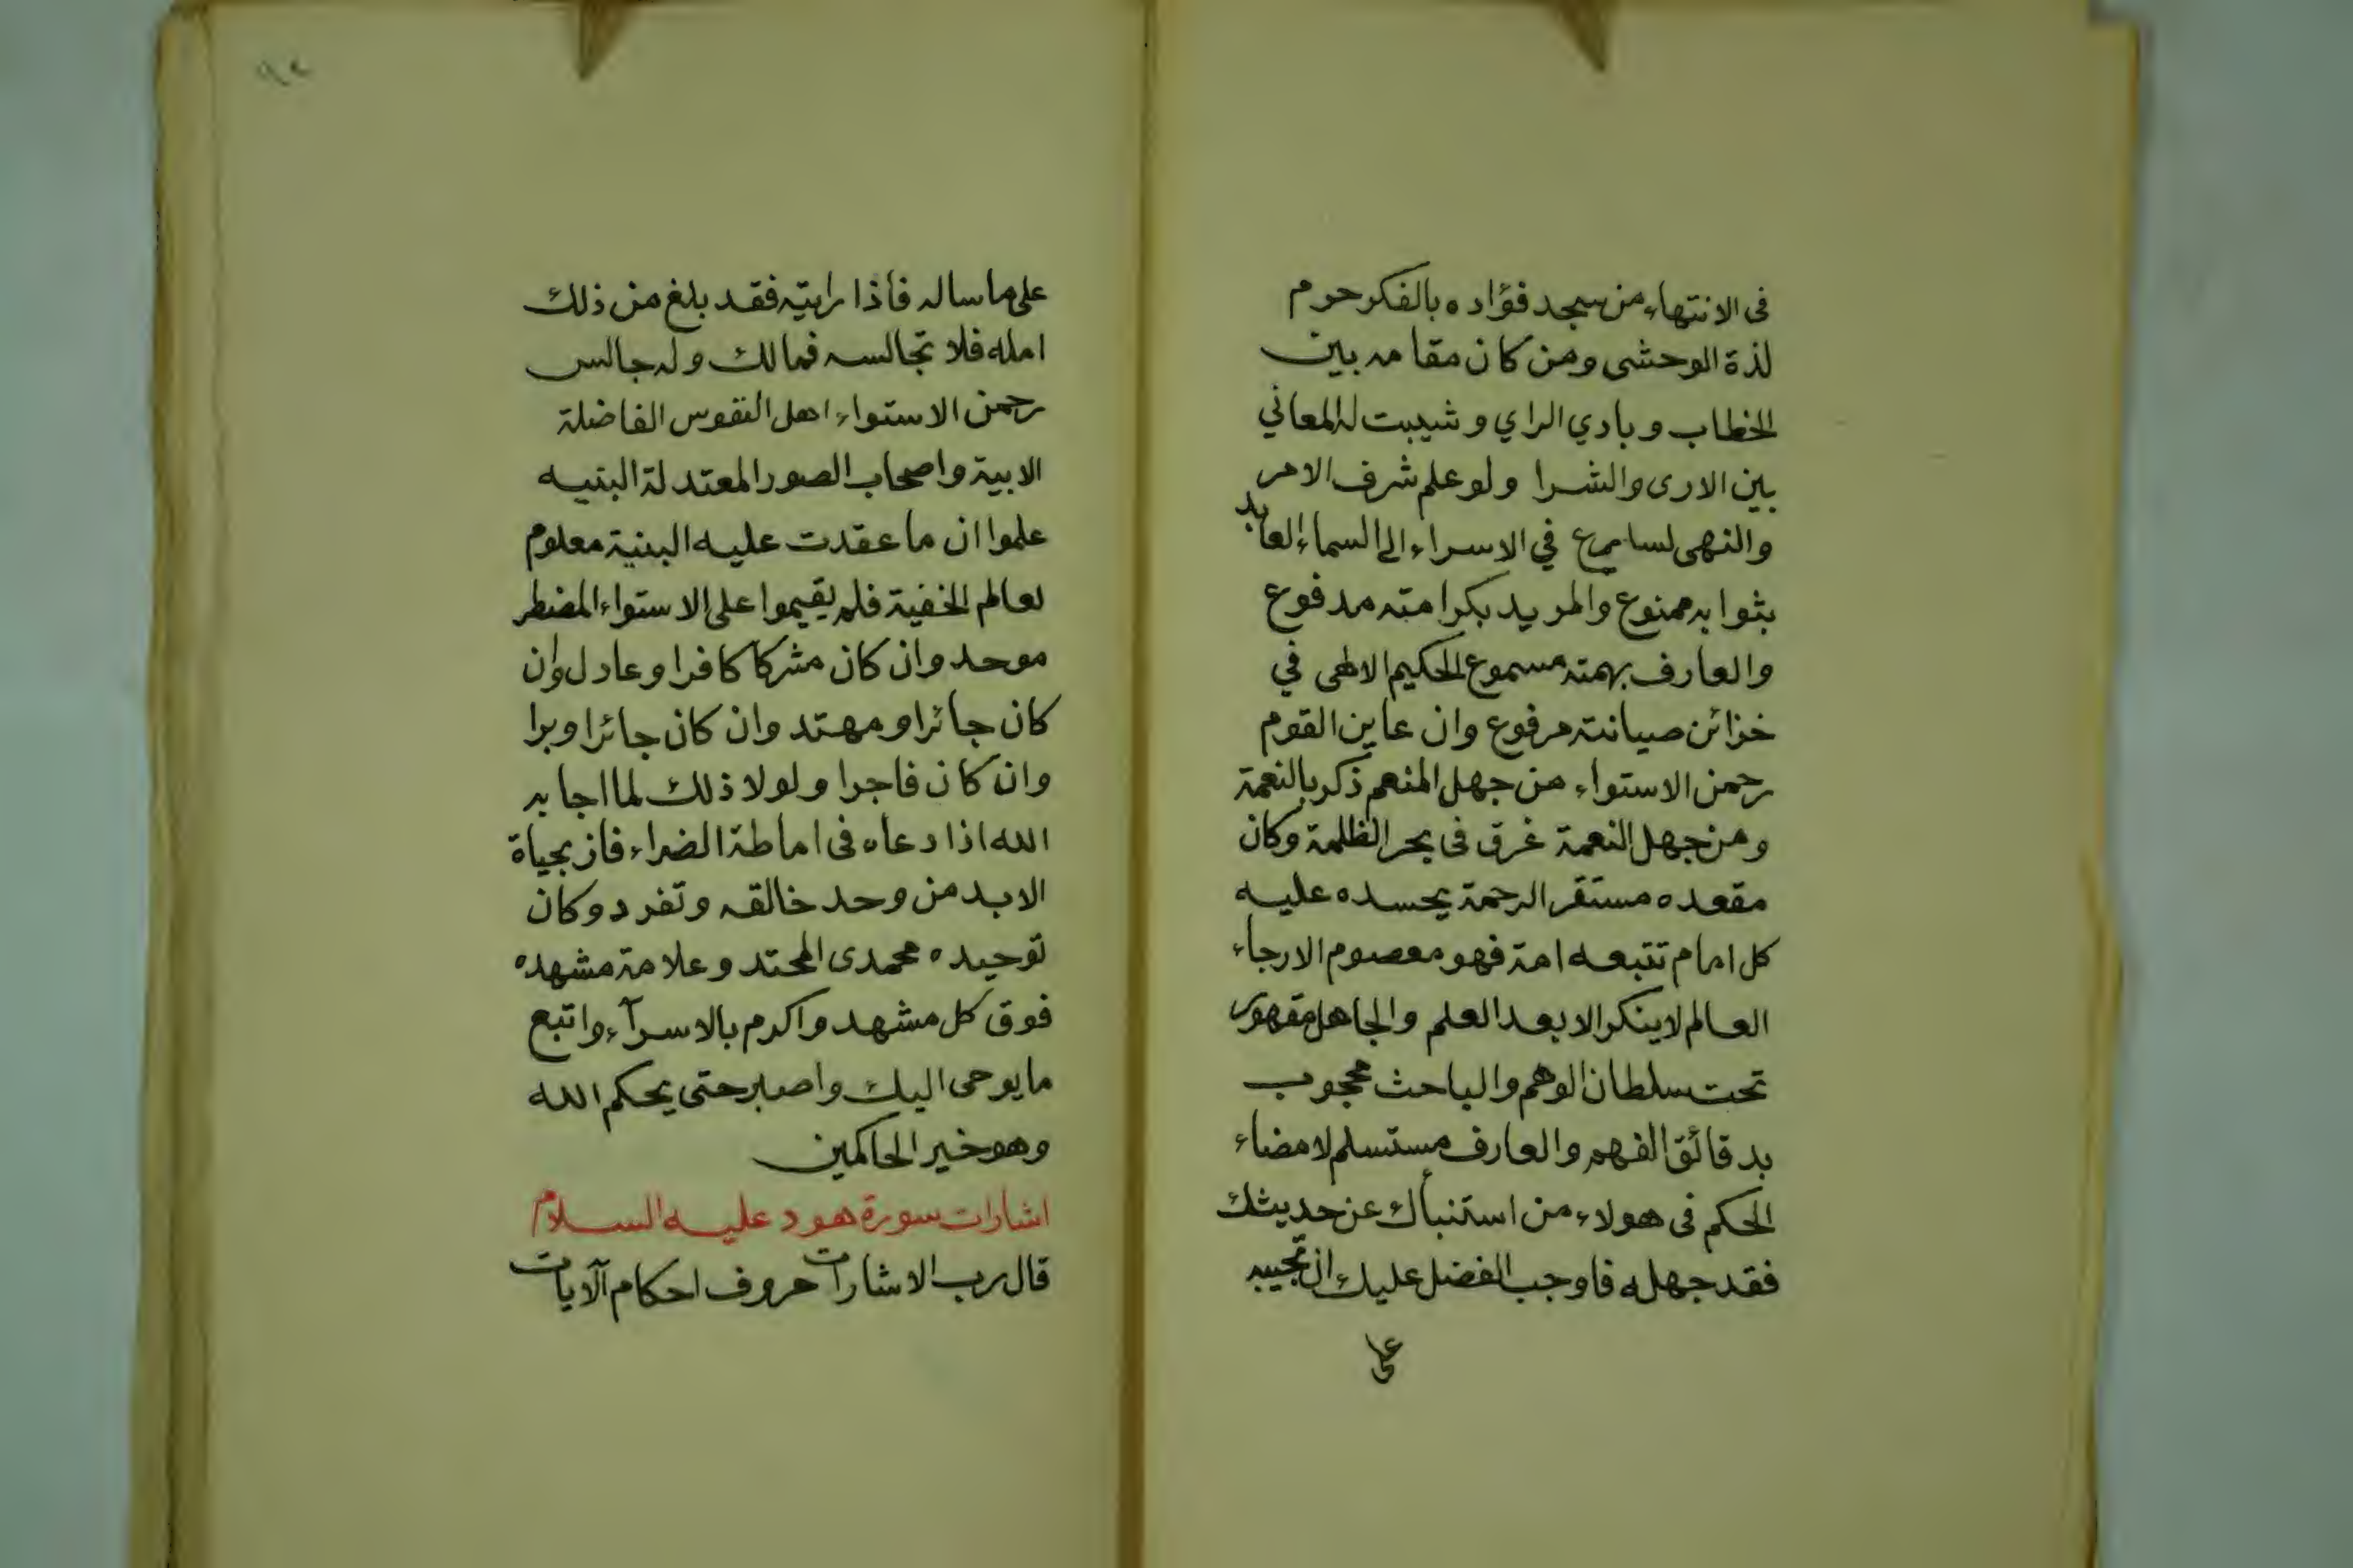 فى الانتهاء من سجد فؤاده بالفكر حرم
لذة الوحشى ومن كان مقامه بين
الخطاب وبادي الراي وشيبت له المعاني
بين الارى والشرا ولو علم شرف الامر
والنهى لسارع في الاسراء الى السماء العابد
بثوابه ممنوع والمريد بكرامته مدفوع
والعارف بهمته مسموع الحكيم الالهى في
خزائن صيانته مرفوع وان عاين القوم
رحمن الاستواء من جهل المنعم ذكر بالنعمة
ومن جهل النعمة غرق فى بحر الظلمة وكان
مقعده مستقر الرحمة يحسده عليه
كل امام تتبعه امة فهو معصوم الارجاء
العالم لا ينكر الا بعد العلم والجاهل مقهور
تحت سلطان الوهم والباحث محجوب
بدقائق الفهم والعارف مستسلم لامضاء
الحكم فى هولاء من استنبأك عن حديثك
فقد جهله فاوجب الفضل عليك ان تجيبه
على
٩٢
على ما ساله فأذا رايته فقد بلغ من ذلك
امله فلا تجالسه فمالك وله جالس
رحمن الاستواء اهل النفوس الفاضلة
الابية واصحاب الصور المعتدلة البنيه
علموا ان ما عقدت عليه البنية معلوم
لعالم الخفية فلم يقيموا على الاستواء المضطر
موحد وان كان مشركا كافرا وعادل وان
كان جائرا ومهتد وان كان جائرا وبرا
وان كان فاجرا ولولا ذلك لما اجابه
الله اذا دعاه فى اماطة الضراء فاز بحياة
الابد من وحد خالقه وتفرد وكان
توحيده محمدى المحتد وعلامة مشهده
فوق كل مشهد واكرم بالاسرآء واتبع
ما يوحى اليك واصبر حتى يحكم الله
وهو خير الحاكمين
اشارات سورة هود عليه السلام
قال رب الاشارات حروف احكام آلآيات